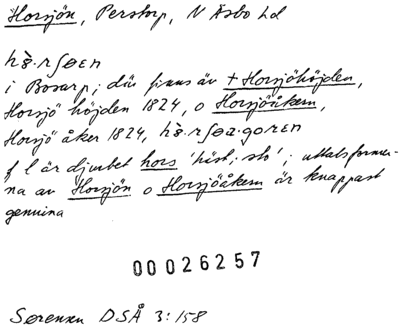 Horsjön, Perstorp, N Åsbo hd
hɷ̀.rʃɵɛn
i Bosarp; där finns äv +Horsjöhöjden,
Horsjö höjden 1824, o Horsjöåkern,
Horsjö åker 1824, hɷ̀.rʃɵa.gorɛn
f l är djurbet hors 'häst; sto'; uttalsformer-
na av Horsjön o Horsjöåkern är knappast
genuina
00026257
Sørensen DSÅ 3:158